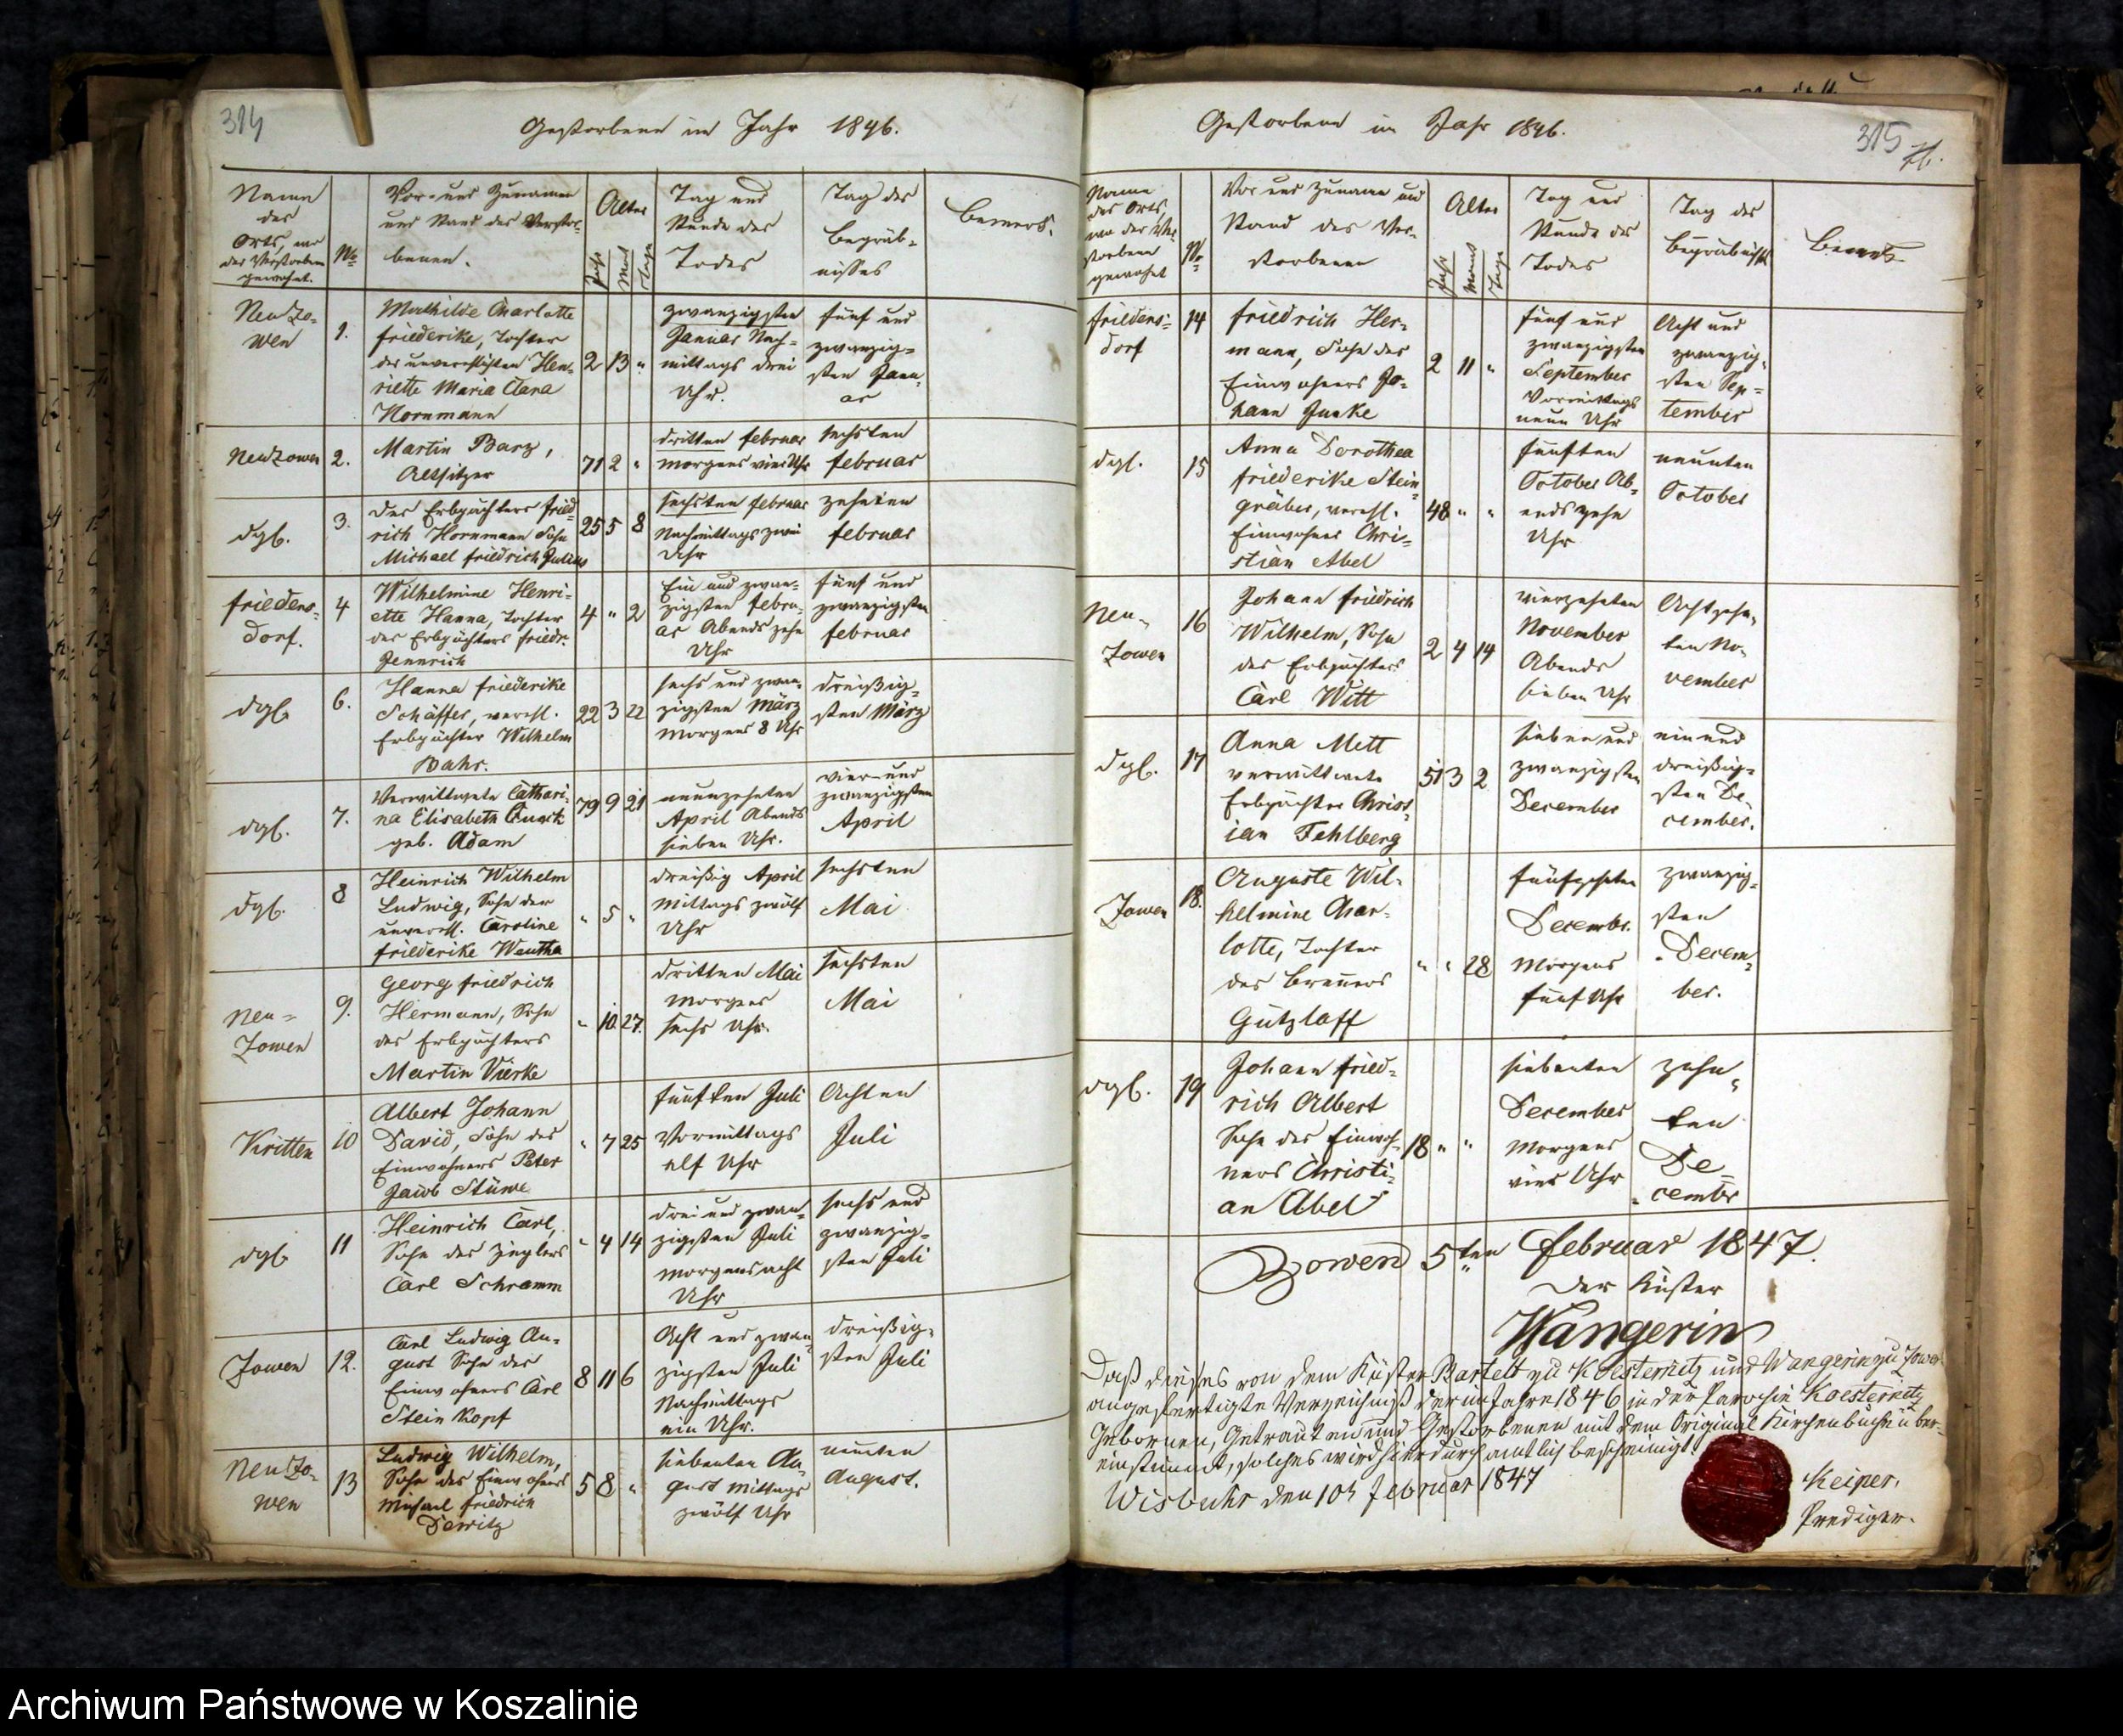 314
Gestorbene im Jahr 1846.
Name
des
Orts, wo
der Verstorbene
gewohnt.
No
Vor- und Zunamen
und Stand des Verstor-
benen.
Alter
Jahr
Mont
Tage
Tag und
Stunde des
Todes
Tag des
Begräb-
nisses
Bemerk.
Neu Zo-
wen
1.
Mathilde Charlotte
Friederike, Tochter
der unverehlichten Hen-
riette Maria Clara
Hornmann
2 13 "
zwanzigsten
Januar Nach-
mittags drei
Uhr.
fünf und
zwanzig-
sten Janu-
ar
Neuzowen
2.
Martin Barz,
Altsitzer
71 2 "
dritten Februar
morgens vier Uhr
sechsten
Februar
dgl.
3.
des Erbpächters Fried-
rich Hornmann Sohn
Michael Friedrich Julius
25 5 8
sechsten Februar
Nachmittags zwei
Uhr
zehnten
Februar
Friedens-
dorf.
4
Wilhelmine Henri-
ette Hanna, Tochter
des Erbpächters Friedr.
Jennrich
4 " 2
Ein und zwan-
zigsten Febru-
ar Abends zehn
Uhr
fünf und
zwanzigsten
Februar
dgl.
6.
Hanna Friederike
Schäffer, verehl.
Erbpächter Wilhelm
Bahr.
22 3 22
sechs und zwan-
zigsten März
Morgens 8 Uhr
dreißig-
sten März
dgl.
7.
Verwittwete Cathari-
na Elisabeth
geb. Adam
79 9 21
neunzehnten
April Abends
sieben Uhr.
vier und
zwanzigsten
April
dgl.
8
Heinrich Wilhelm
Ludwig, Sohn der
unverehl. Caroline
Friederike
" 5 "
dreißig April
Mittags zwölf
Uhr
sechsten
Mai
Neu-
Zowen
9.
Georg Friedrich
Hermann, Sohn
des Erbpächters
Martin Vierke
" 10 27.
dritten Mai
morgens
sechs Uhr.
sechsten
Mai
Kritten
10
Albert Johann
David, Sohn des
Einwohners Peter
Jacob Stüwe
" 7 25
fünften Juli
Vormittags
elf Uhr
Achten
Juli
dgl.
11
Heinrich Carl,
Sohn des Zieglers
Carl Schramm
" 4 14
drei und zwan-
zigsten Juli
morgens acht
Uhr
sechs und
zwanzig-
sten Juli
Zowen
12.
Carl Ludwig Au-
gust Sohn des
Einwohners Carl
Steinkopf
8 11 6
Acht und zwan-
zigsten Juli
Nachmittags
ein Uhr.
dreißig-
sten Juli
Neu Zo-
wen
13
Ludwig Wilhelm,
Sohn des Einwohners
Michael Friedrich
Dewitz
5 8 "
siebenten Au-
gust Mittags
zwölf Uhr
neunten
August.
Gestorbene im Jahr 1846.
315
Name
des Orts
wo der Ver-
storbene
gewohnt
Nr
Vor und Zuname und
Stand des Ver-
storbenen
Alter
Jahr
Monat
Tage
Tag und
Stunde des
Todes
Tag des
Begräbnisses
Bemerk.
Friedens-
dorf
14
Friedrich Her-
mann, Sohn des
Einwohners Jo-
hann Junke
2 11 "
fünf und
zwanzigsten
September
Vormittags
neun Uhr
Acht und
zwanzig-
sten Sep-
tember
dgl.
15
Anna Dorothea
Friederike Stein-
gräber, verehl.
Einwohner Chri-
stian Abel
48 " "
fünften
October Ab-
ends zehn
Uhr
neunten
October
Neu-
Zowen
16
Johann Friedrich
Wilhelm, Sohn
des Erbpächters
Carl Witt
2 4 14
vierzehnten
November
Abends
sieben Uhr
Achtzehn-
ten No-
vember
dgl.
17
Anna Mett
verwittwete
Erbpächter Christ-
ian Fehlberg
51 3 2
sieben und
zwanzigsten
December
ein und
dreißig-
sten De-
cember.
Zowen
18.
Auguste Wil-
helmine Char-
lotte, Tochter
des Brauers
Gützlaff
" " 28
fünfzehnten
Decembr.
Morgens
fünf Uhr
zwanzig-
sten
Decem-
ber.
dgl.
19
Johann Fried-
rich Albert
Sohn des Einwoh-
ners Christi-
an Abel
18 " "
siebenten
December
Morgens
vier Uhr
zehn-
ten
De-
cembr
Zowen 5ten Februar 1847.
Der Küster
Wangerin
Daß dieses von dem Küster Bartelt zu Koesternitz und Wangerin zu Zowen
angefertigte Verzeichniß der im Jahre 1846 in der Parochie Koesternitz
Gebornen, Getrauten und Gestorbenen mit dem Original Kirchenbuche über-
einstimmt, solches wird hierdurch amtlich bescheinigt.
Wisbuhr den 10t Februar 1847
Keiper.
Prediger.
Archiwum Państwowe w Koszalinie